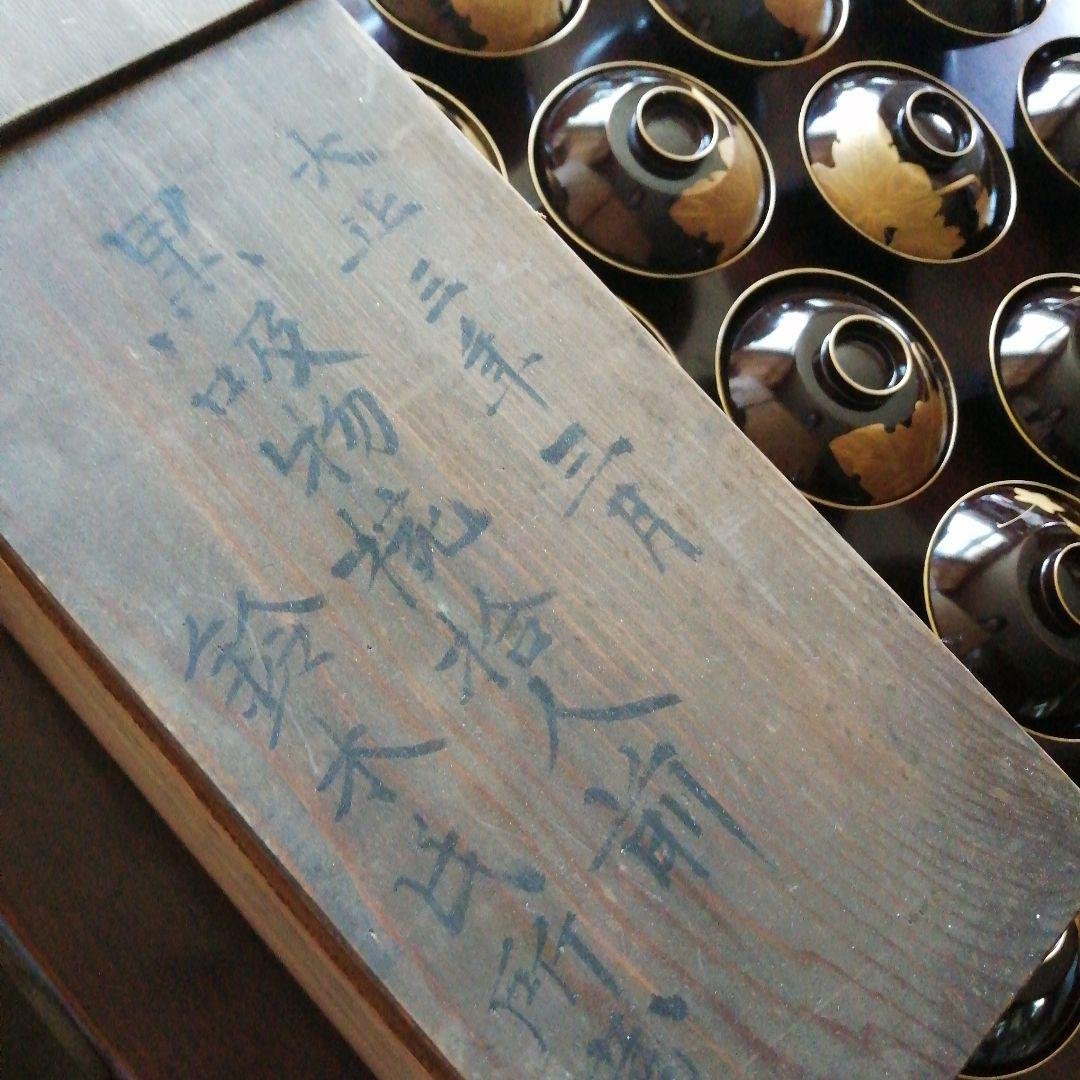 大正三年三月
黒吸物椀拾人前
鈴木氏所